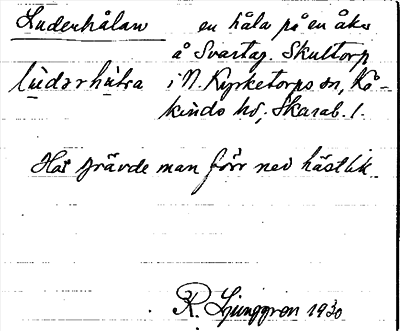 Luderhålan en håla på en åker
å Svartag. Skultorp
lùdərhù̀la i N. Kyrketorps sn, Kå-
kinds hd, Skarab. l.
Här grävde man förr ned hästlik.
R. Ljunggren 1930